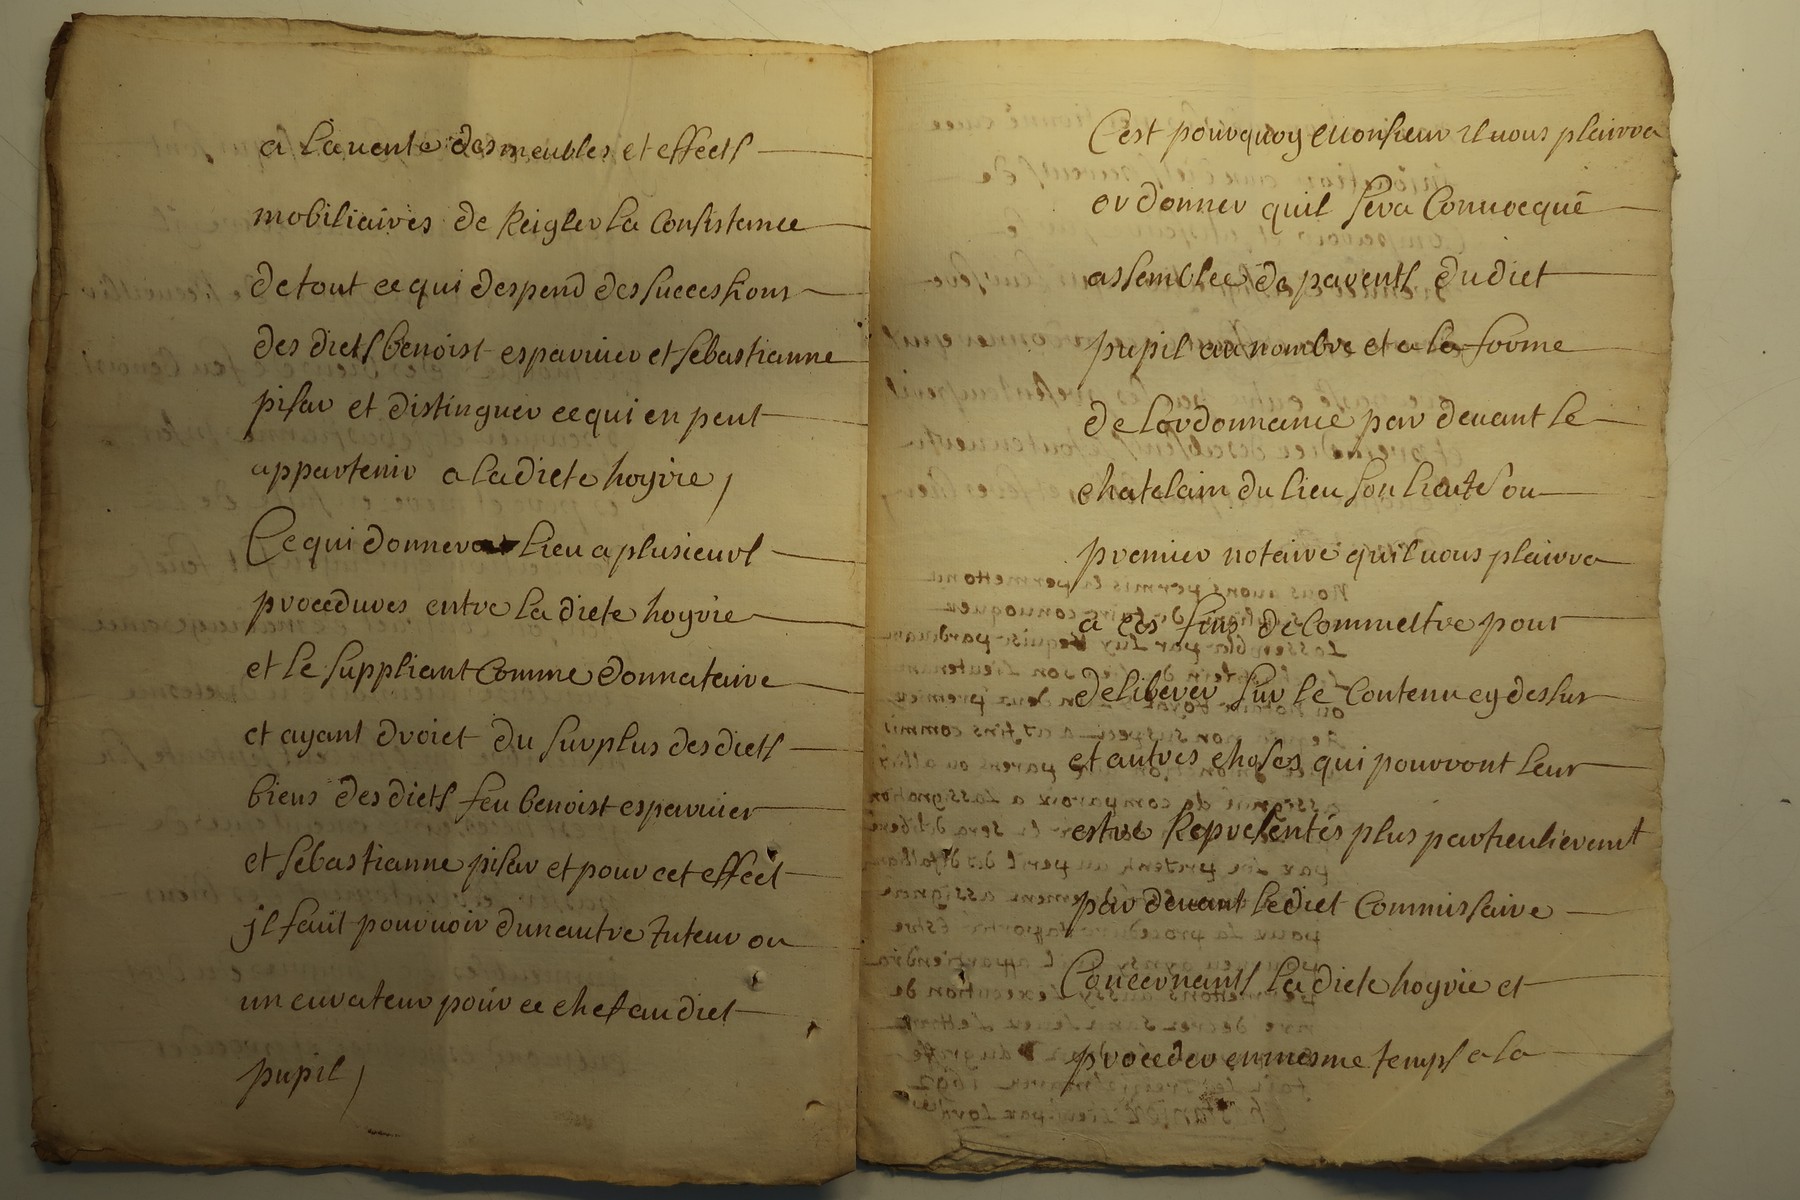 a la uente des meubles et effects
mobiliaires de Reigler la Consistance
de tout ce qui despend des successions
des dicts benoist esparuier et sebastianne
pisar et distinguer ce qui en peut
appartenir a la dicte hoyrie,
Ce qui donnera lieu a plusieurs
procedures entre la dicte hoyrie
et le suppliant Comme donnataire
et ayant droict du surplus des dicts
biens des dicts feu benoist esparuier
et sebastianne pisar et pour cet effect
jl faut pouruoir dun autre tuteur ou
un curateur pour ce chef au dict
pupil,
C'est pourquoy Monsieur Il uous plairra
ordonner quil sera Conuocqué
assemblee de parents du dict
pupil au nombre et a la forme
de lordonnance par deuant le
chatelain du lieu son lieut ou
premier notaire quil uous plairra
a ces fins de Commettre pour
deliberer sur le Contenu cy dessus
et autres choses qui pourront leur
estre Representés plus particulierement
par deuant le dict Commissaire
Concernants la dicte hoyrie et
proceder en mesme temps a la